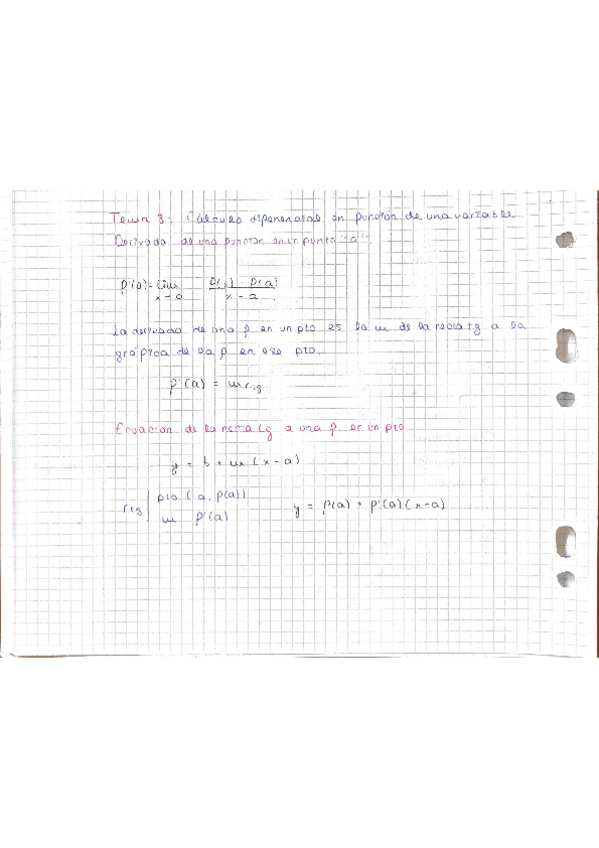 Tema 3: Cálculo diferencial en función de una variable
Derivada de una función en un punto "a".
f'(a) = lim f(x) - f(a)
x→a x - a
La derivada de una f en un pto es la m de la recta tg a la
gráfica de la f en ese pto.
f'(a) = m rtg
Ecuación de la recta tg a una f en un pto
y = b + m (x - a)
rtg | pto (a, f(a))
m f'(a)
y = f(a) + f'(a) (x - a)